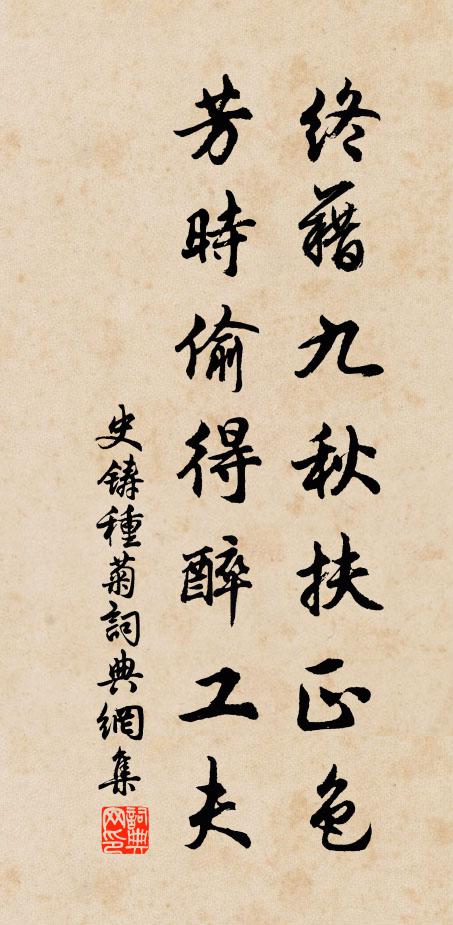 終藉九秋扶正色
芳時偷得醉工夫
史鑄種菊詞典網集
詞典網印